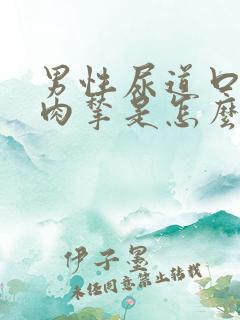 男性尿道口
肉㨗是怎麼
伊子墨
未经同意禁止转载